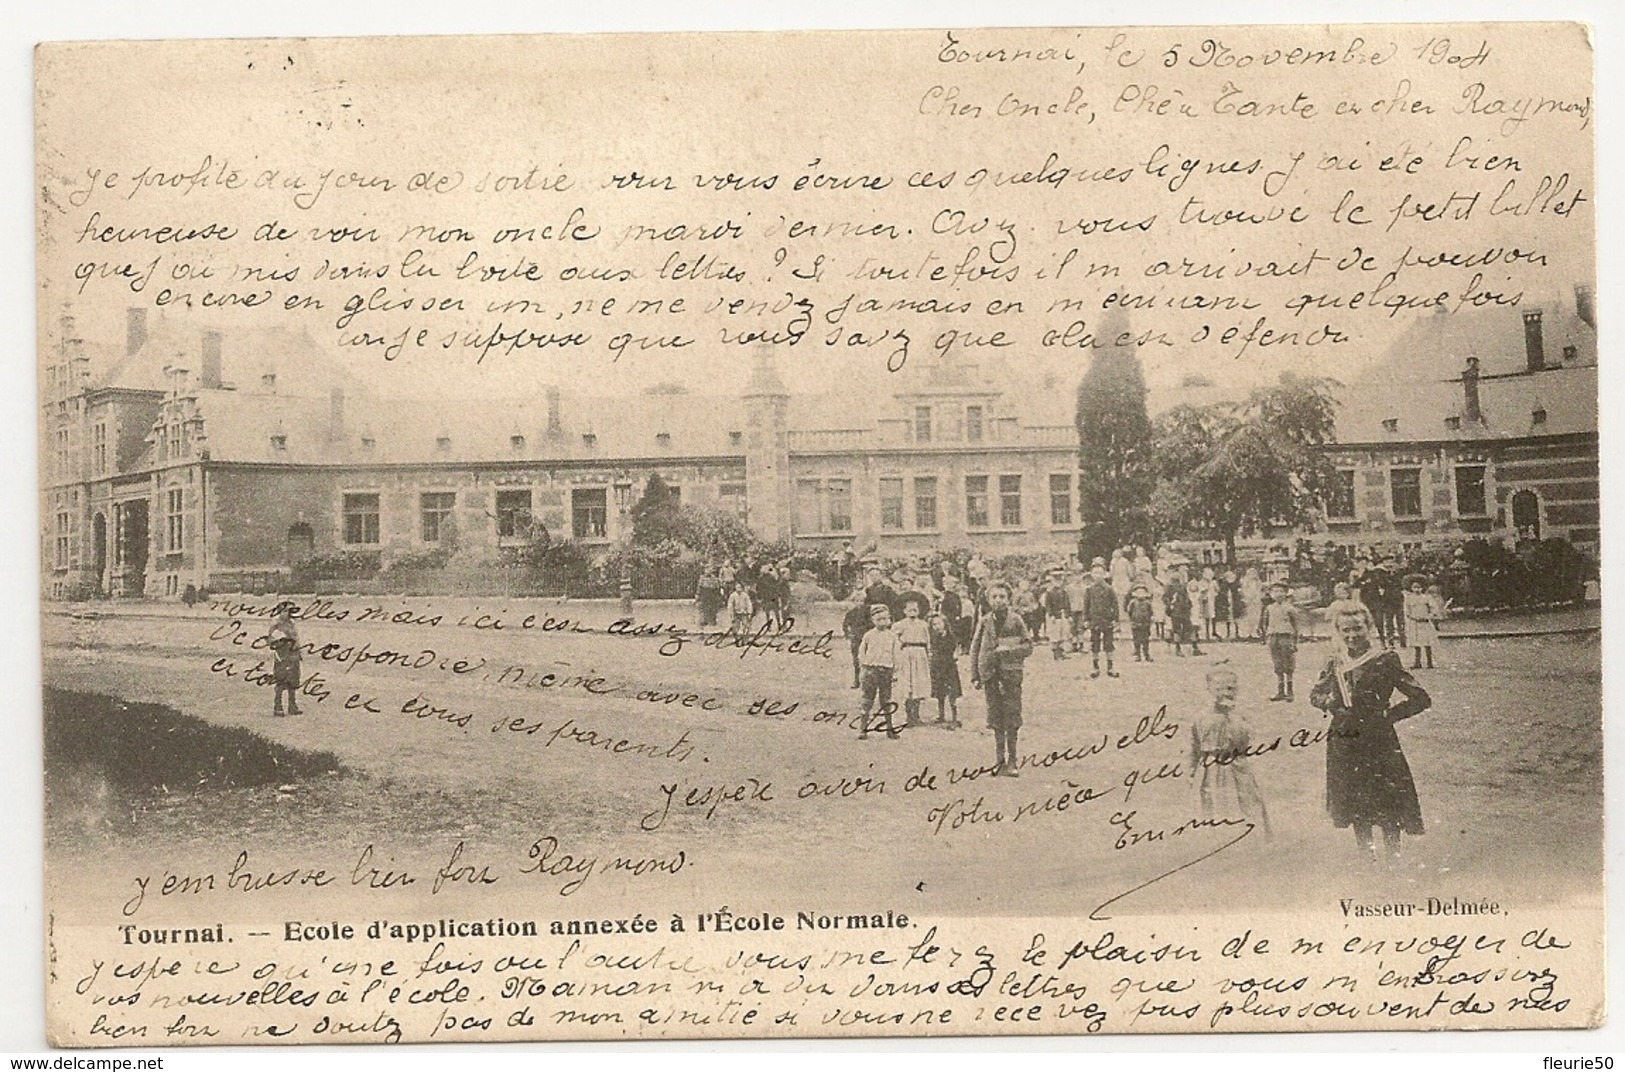 Tournai, le 5 Novembre 1904
Cher Oncle, Chère Tante et cher Raymond,
Je profite du jour de sortie pour vous écrire ces quelques lignes. J'ai été bien
heureuse de voir mon oncle mardi dernier. Avez vous trouvé le petit billet
que j'ai mis dans la boîte aux lettres? Si toutefois il m'arrivait de pouvoir
encore en glisser un, ne me vendez jamais en m'écrivant quelquefois
car je suppose que vous savez que cela est défendu.
J'espère qu'une fois ou l'autre vous me ferez le plaisir de m'envoyer de
vos nouvelles à l'école. Maman m'a dit dans ses lettres que vous m'embrassiez
bien fort ne doutez pas de mon amitié si vous ne recevez pas plus souvent de mes
nouvelles mais ici c'est assez difficile
de correspondre, même avec ses oncles
et tantes et tous ses parents.
J'espère avoir de vos nouvelles
Votre nièce qui vous aime
J'embrasse bien fort Raymond.
Tournai. — Ecole d'application annexée à l'École Normale.
Vasseur-Delmée.
www.delcampe.net
fleurie50